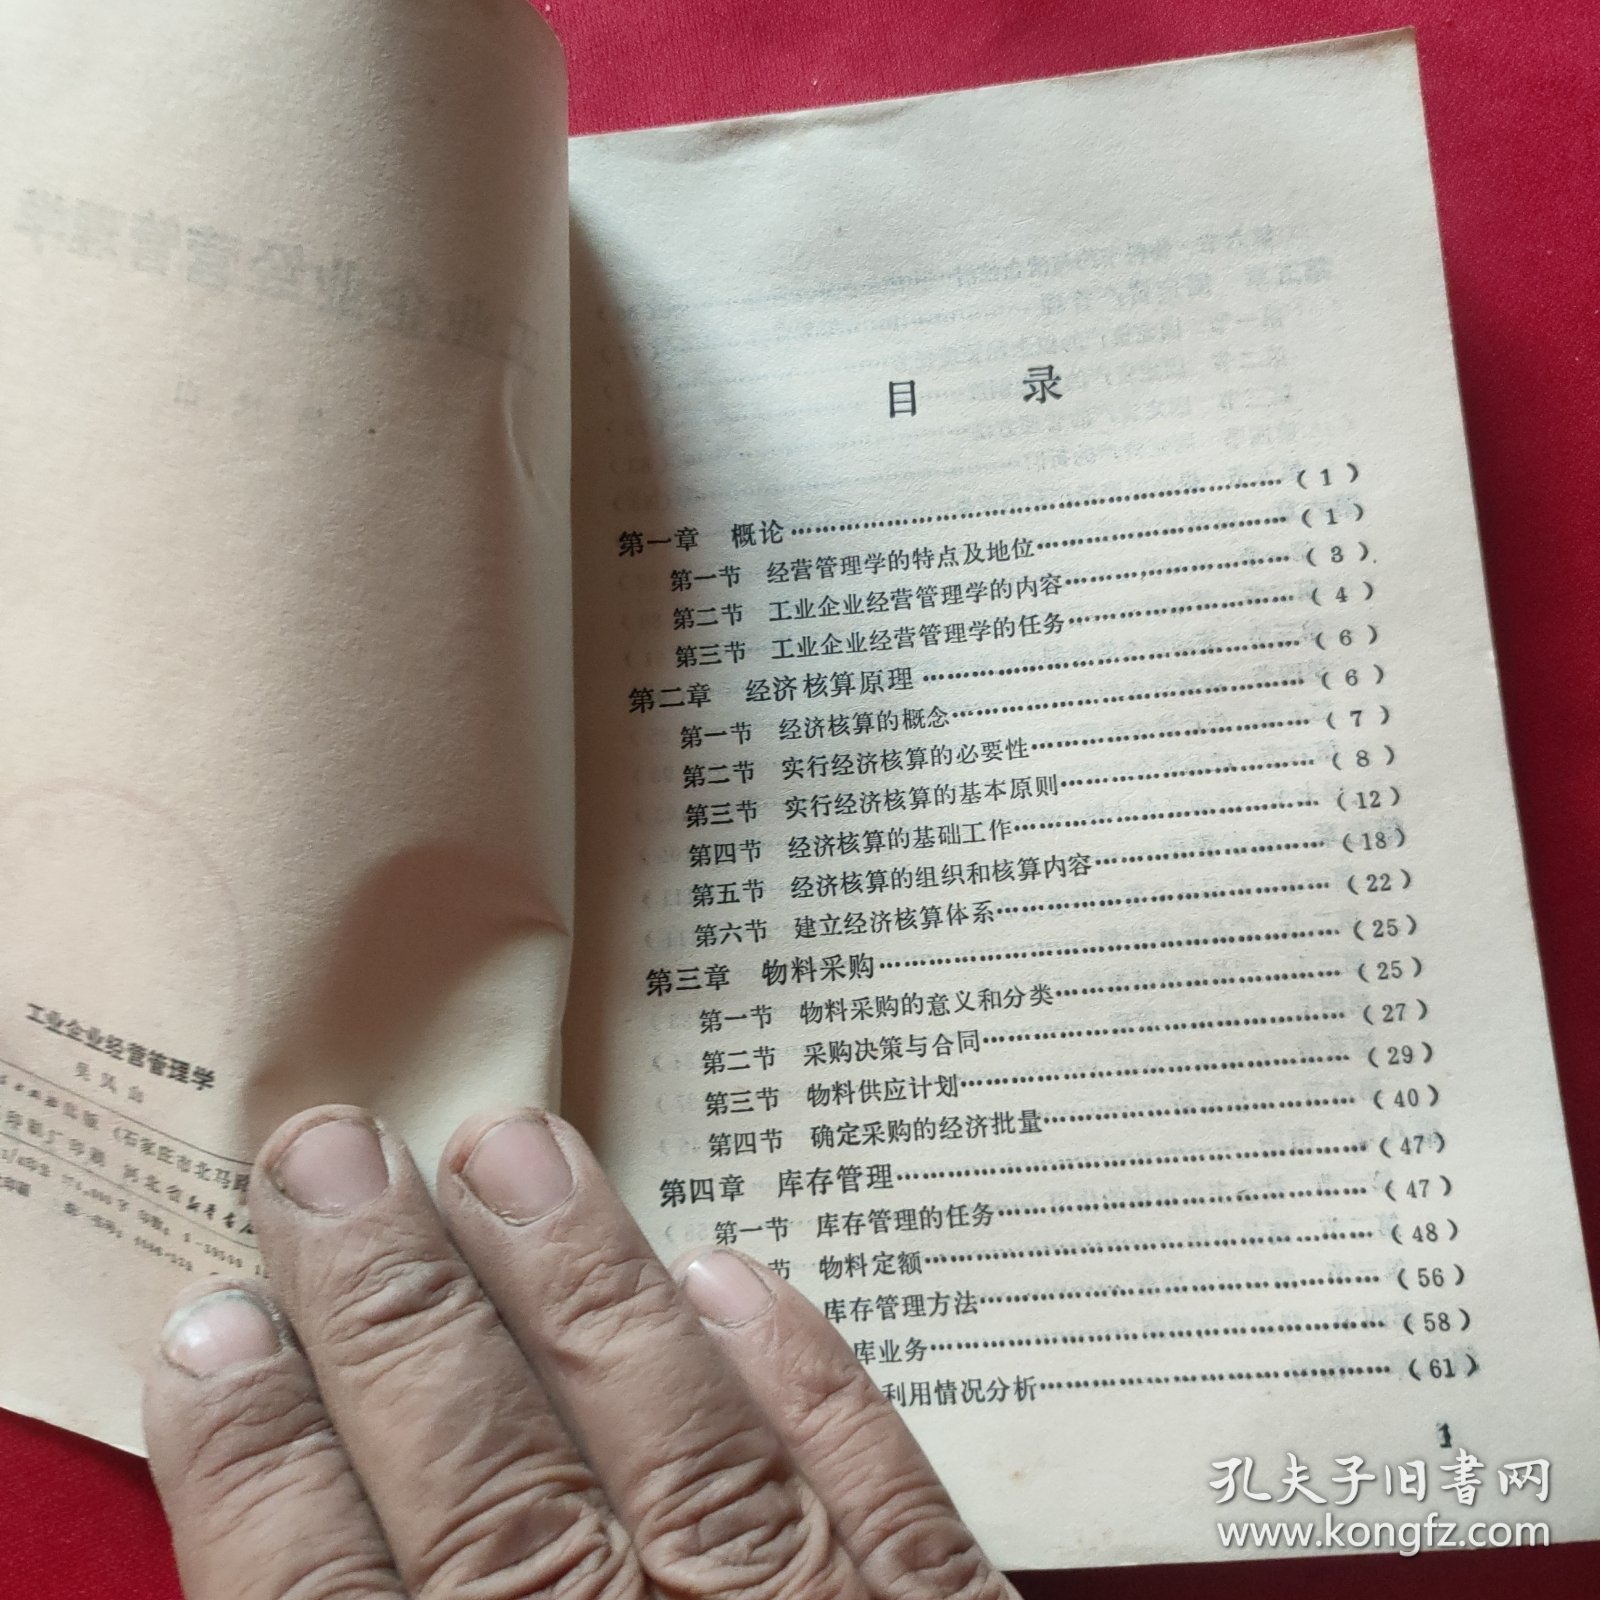 工业企业经营管理学
吴凤山
出版（石家庄市北马路
目 录
第一章 概论……（1）
第一节 经营管理学的特点及地位……（1）
第二节 工业企业经营管理学的内容……（3）
第三节 工业企业经营管理学的任务……（4）
第二章 经济核算原理……（6）
第一节 经济核算的概念……（6）
第二节 实行经济核算的必要性……（7）
第三节 实行经济核算的基本原则……（8）
第四节 经济核算的基础工作……（12）
第五节 经济核算的组织和核算内容……（18）
第六节 建立经济核算体系……（22）
第三章 物料采购……（25）
第一节 物料采购的意义和分类……（25）
第二节 采购决策与合同……（27）
第三节 物料供应计划……（29）
第四节 确定采购的经济批量……（40）
第四章 库存管理……（47）
第一节 库存管理的任务……（47）
节 物料定额……（48）
库存管理方法……（56）
库业务……（58）
利用情况分析……（61）
1
孔夫子旧书网
www.kongfz.com